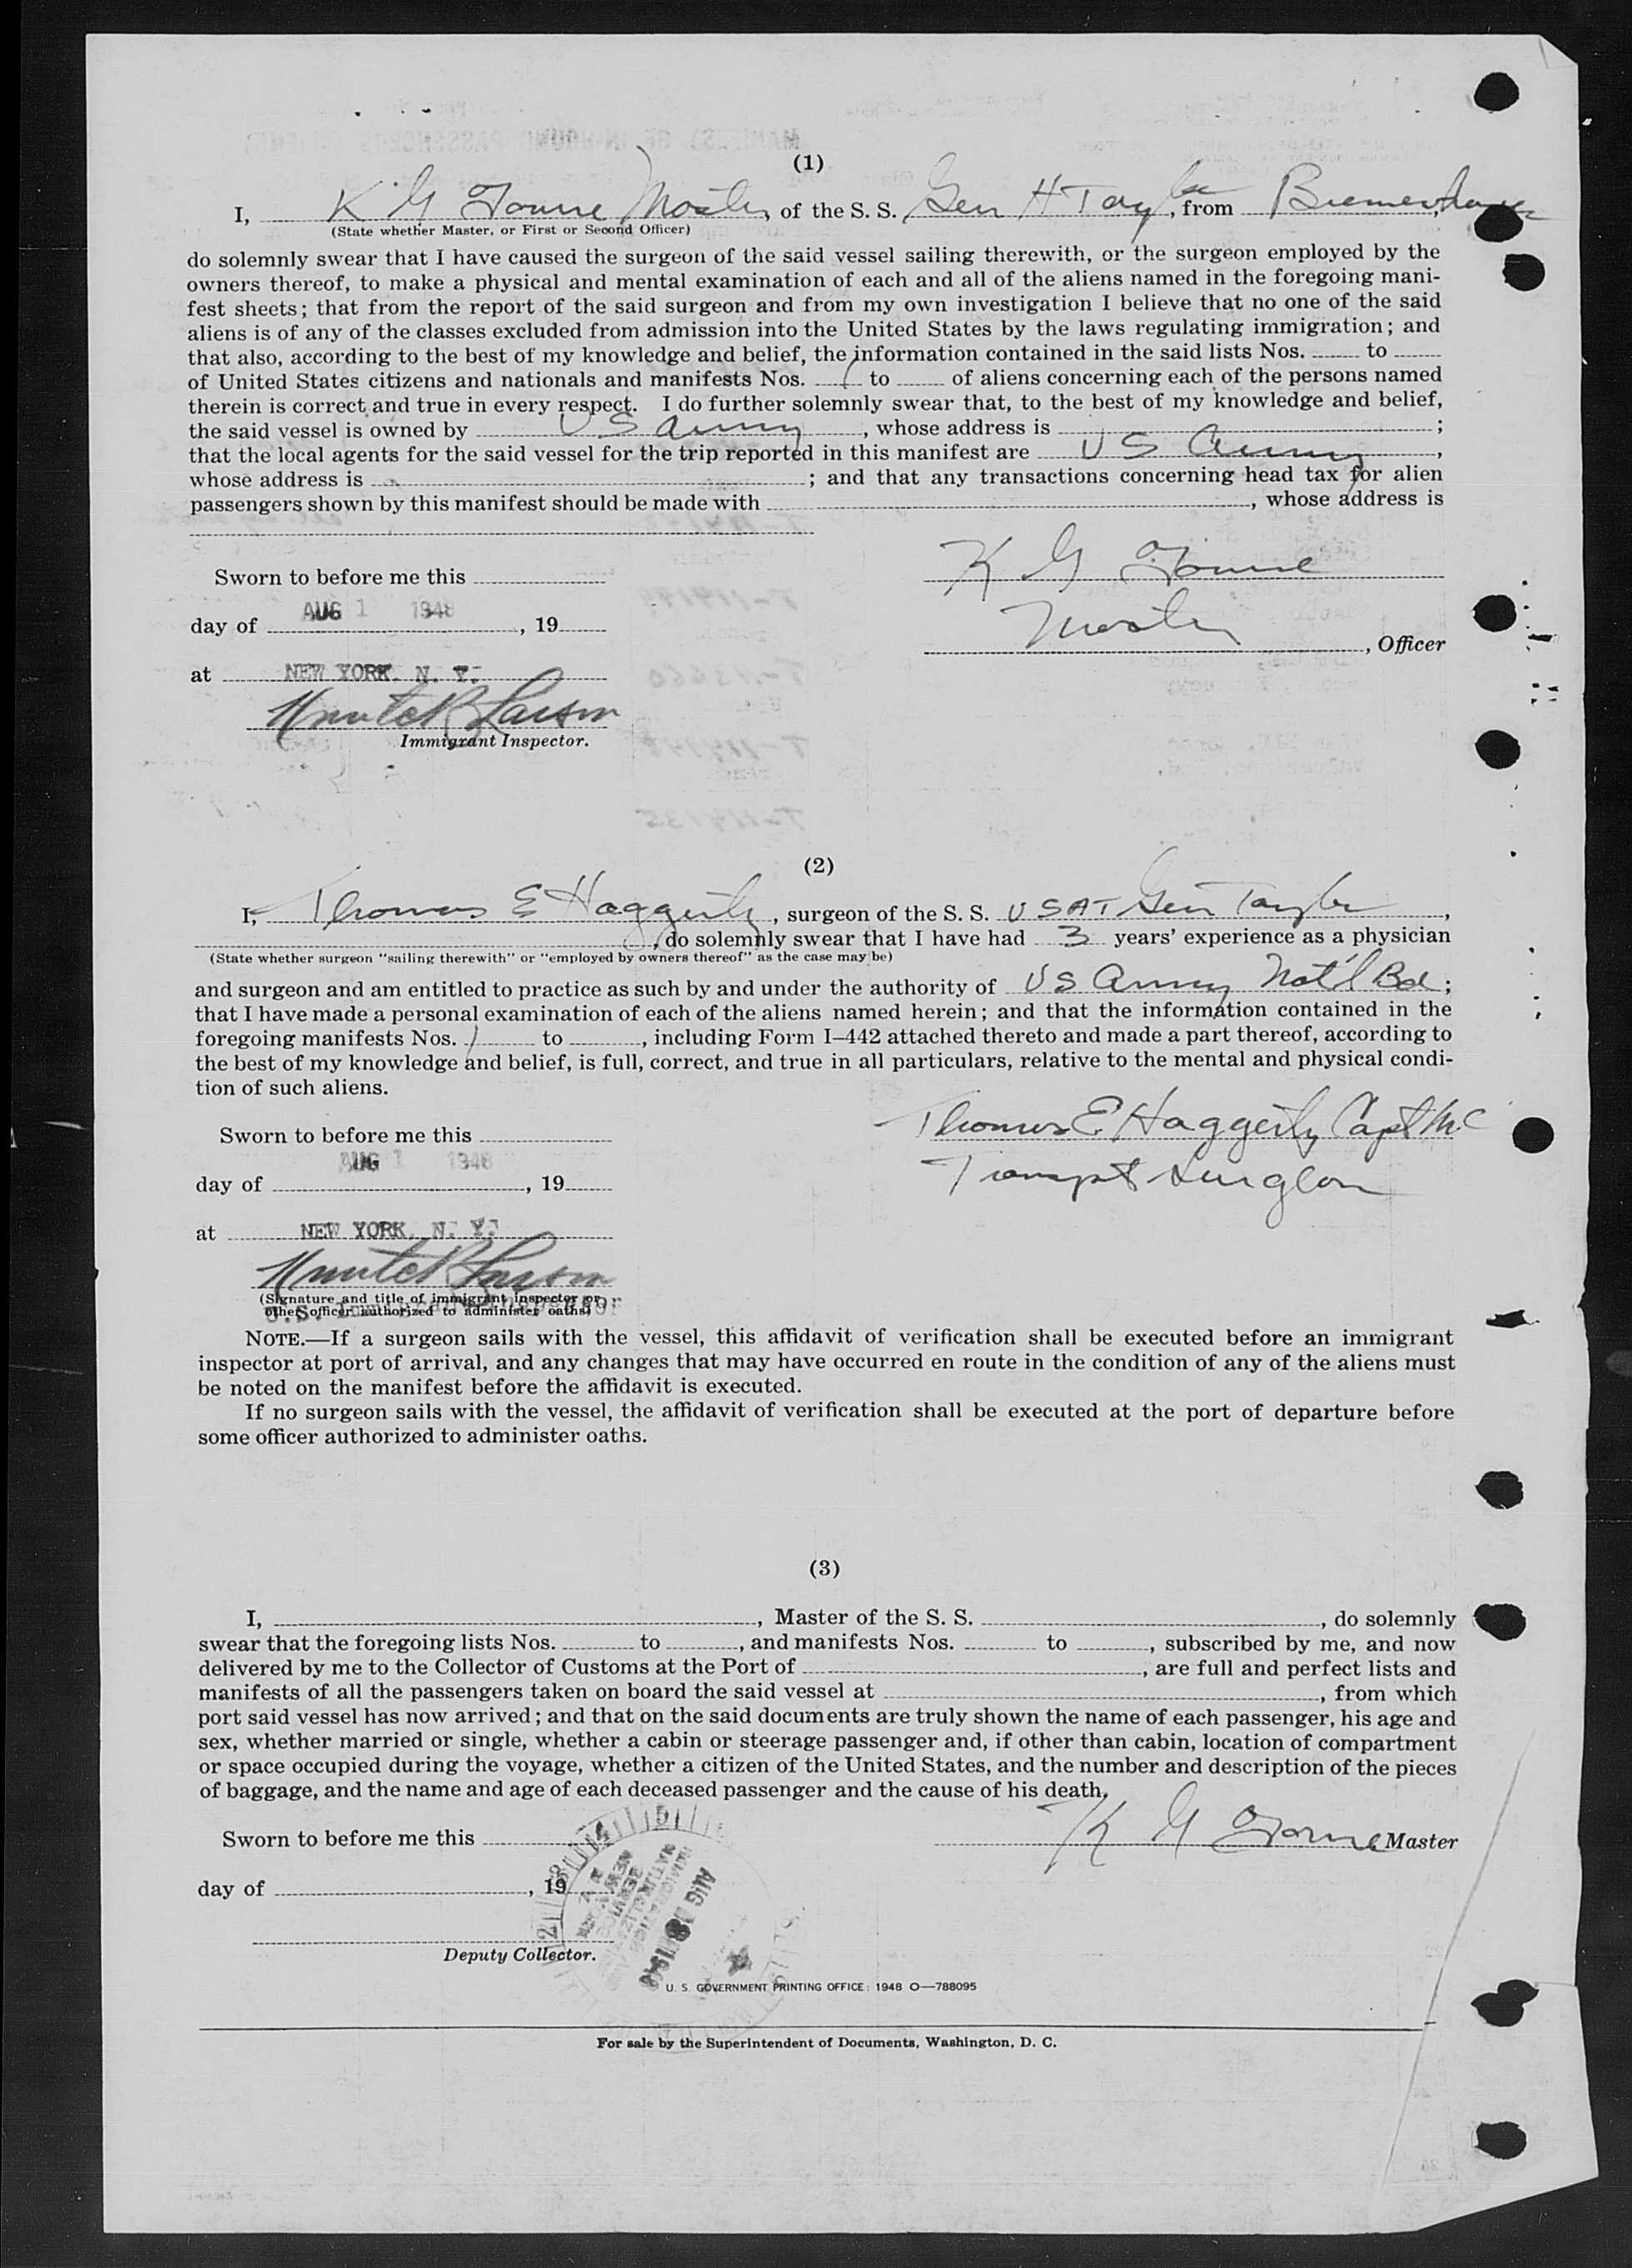 (1)
I, K G Tonne Master, of the S. S. Gen H Taylor, from Bremerhaven,
(State whether Master, or First or Second Officer)
do solemnly swear that I have caused the surgeon of the said vessel sailing therewith, or the surgeon employed by the
owners thereof, to make a physical and mental examination of each and all of the aliens named in the foregoing mani-
fest sheets; that from the report of the said surgeon and from my own investigation I believe that no one of the said
aliens is of any of the classes excluded from admission into the United States by the laws regulating immigration; and
that also, according to the best of my knowledge and belief, the information contained in the said lists Nos. to
of United States citizens and nationals and manifests Nos. 1 to of aliens concerning each of the persons named
therein is correct and true in every respect. I do further solemnly swear that, to the best of my knowledge and belief,
the said vessel is owned by U S Army, whose address is ;
that the local agents for the said vessel for the trip reported in this manifest are U S Army,
whose address is ; and that any transactions concerning head tax for alien
passengers shown by this manifest should be made with , whose address is
Sworn to before me this
K G
day of AUG 1 1948, 19
Master, Officer
at NEW YORK, N. Y.
Larson
Immigrant Inspector.
(2)
I, Thomas E Haggerty, surgeon of the S. S. USAT Gen Taylor,
, do solemnly swear that I have had 3 years' experience as a physician
(State whether surgeon "sailing therewith" or "employed by owners thereof" as the case may be)
and surgeon and am entitled to practice as such by and under the authority of US Army Nat'l Bd;
that I have made a personal examination of each of the aliens named herein; and that the information contained in the
foregoing manifests Nos. 1 to , including Form I–442 attached thereto and made a part thereof, according to
the best of my knowledge and belief, is full, correct, and true in all particulars, relative to the mental and physical condi-
tion of such aliens.
Thomas E Haggerty Capt MC
Sworn to before me this
Transpt Surgeon
day of AUG 1 1948, 19
at NEW YORK, N. Y.
Larson
(Signature and title of immigrant inspector or
other officer authorized to administer oaths)
U.S. Immigrant Inspector
NOTE.—If a surgeon sails with the vessel, this affidavit of verification shall be executed before an immigrant
inspector at port of arrival, and any changes that may have occurred en route in the condition of any of the aliens must
be noted on the manifest before the affidavit is executed.
If no surgeon sails with the vessel, the affidavit of verification shall be executed at the port of departure before
some officer authorized to administer oaths.
(3)
I, , Master of the S. S. , do solemnly
swear that the foregoing lists Nos. to , and manifests Nos. to , subscribed by me, and now
delivered by me to the Collector of Customs at the Port of , are full and perfect lists and
manifests of all the passengers taken on board the said vessel at , from which
port said vessel has now arrived; and that on the said documents are truly shown the name of each passenger, his age and
sex, whether married or single, whether a cabin or steerage passenger and, if other than cabin, location of compartment
or space occupied during the voyage, whether a citizen of the United States, and the number and description of the pieces
of baggage, and the name and age of each deceased passenger and the cause of his death.
Sworn to before me this
K G Master
day of , 19
Deputy Collector.
U. S. GOVERNMENT PRINTING OFFICE: 1948 O—788095
For sale by the Superintendent of Documents, Washington, D. C.